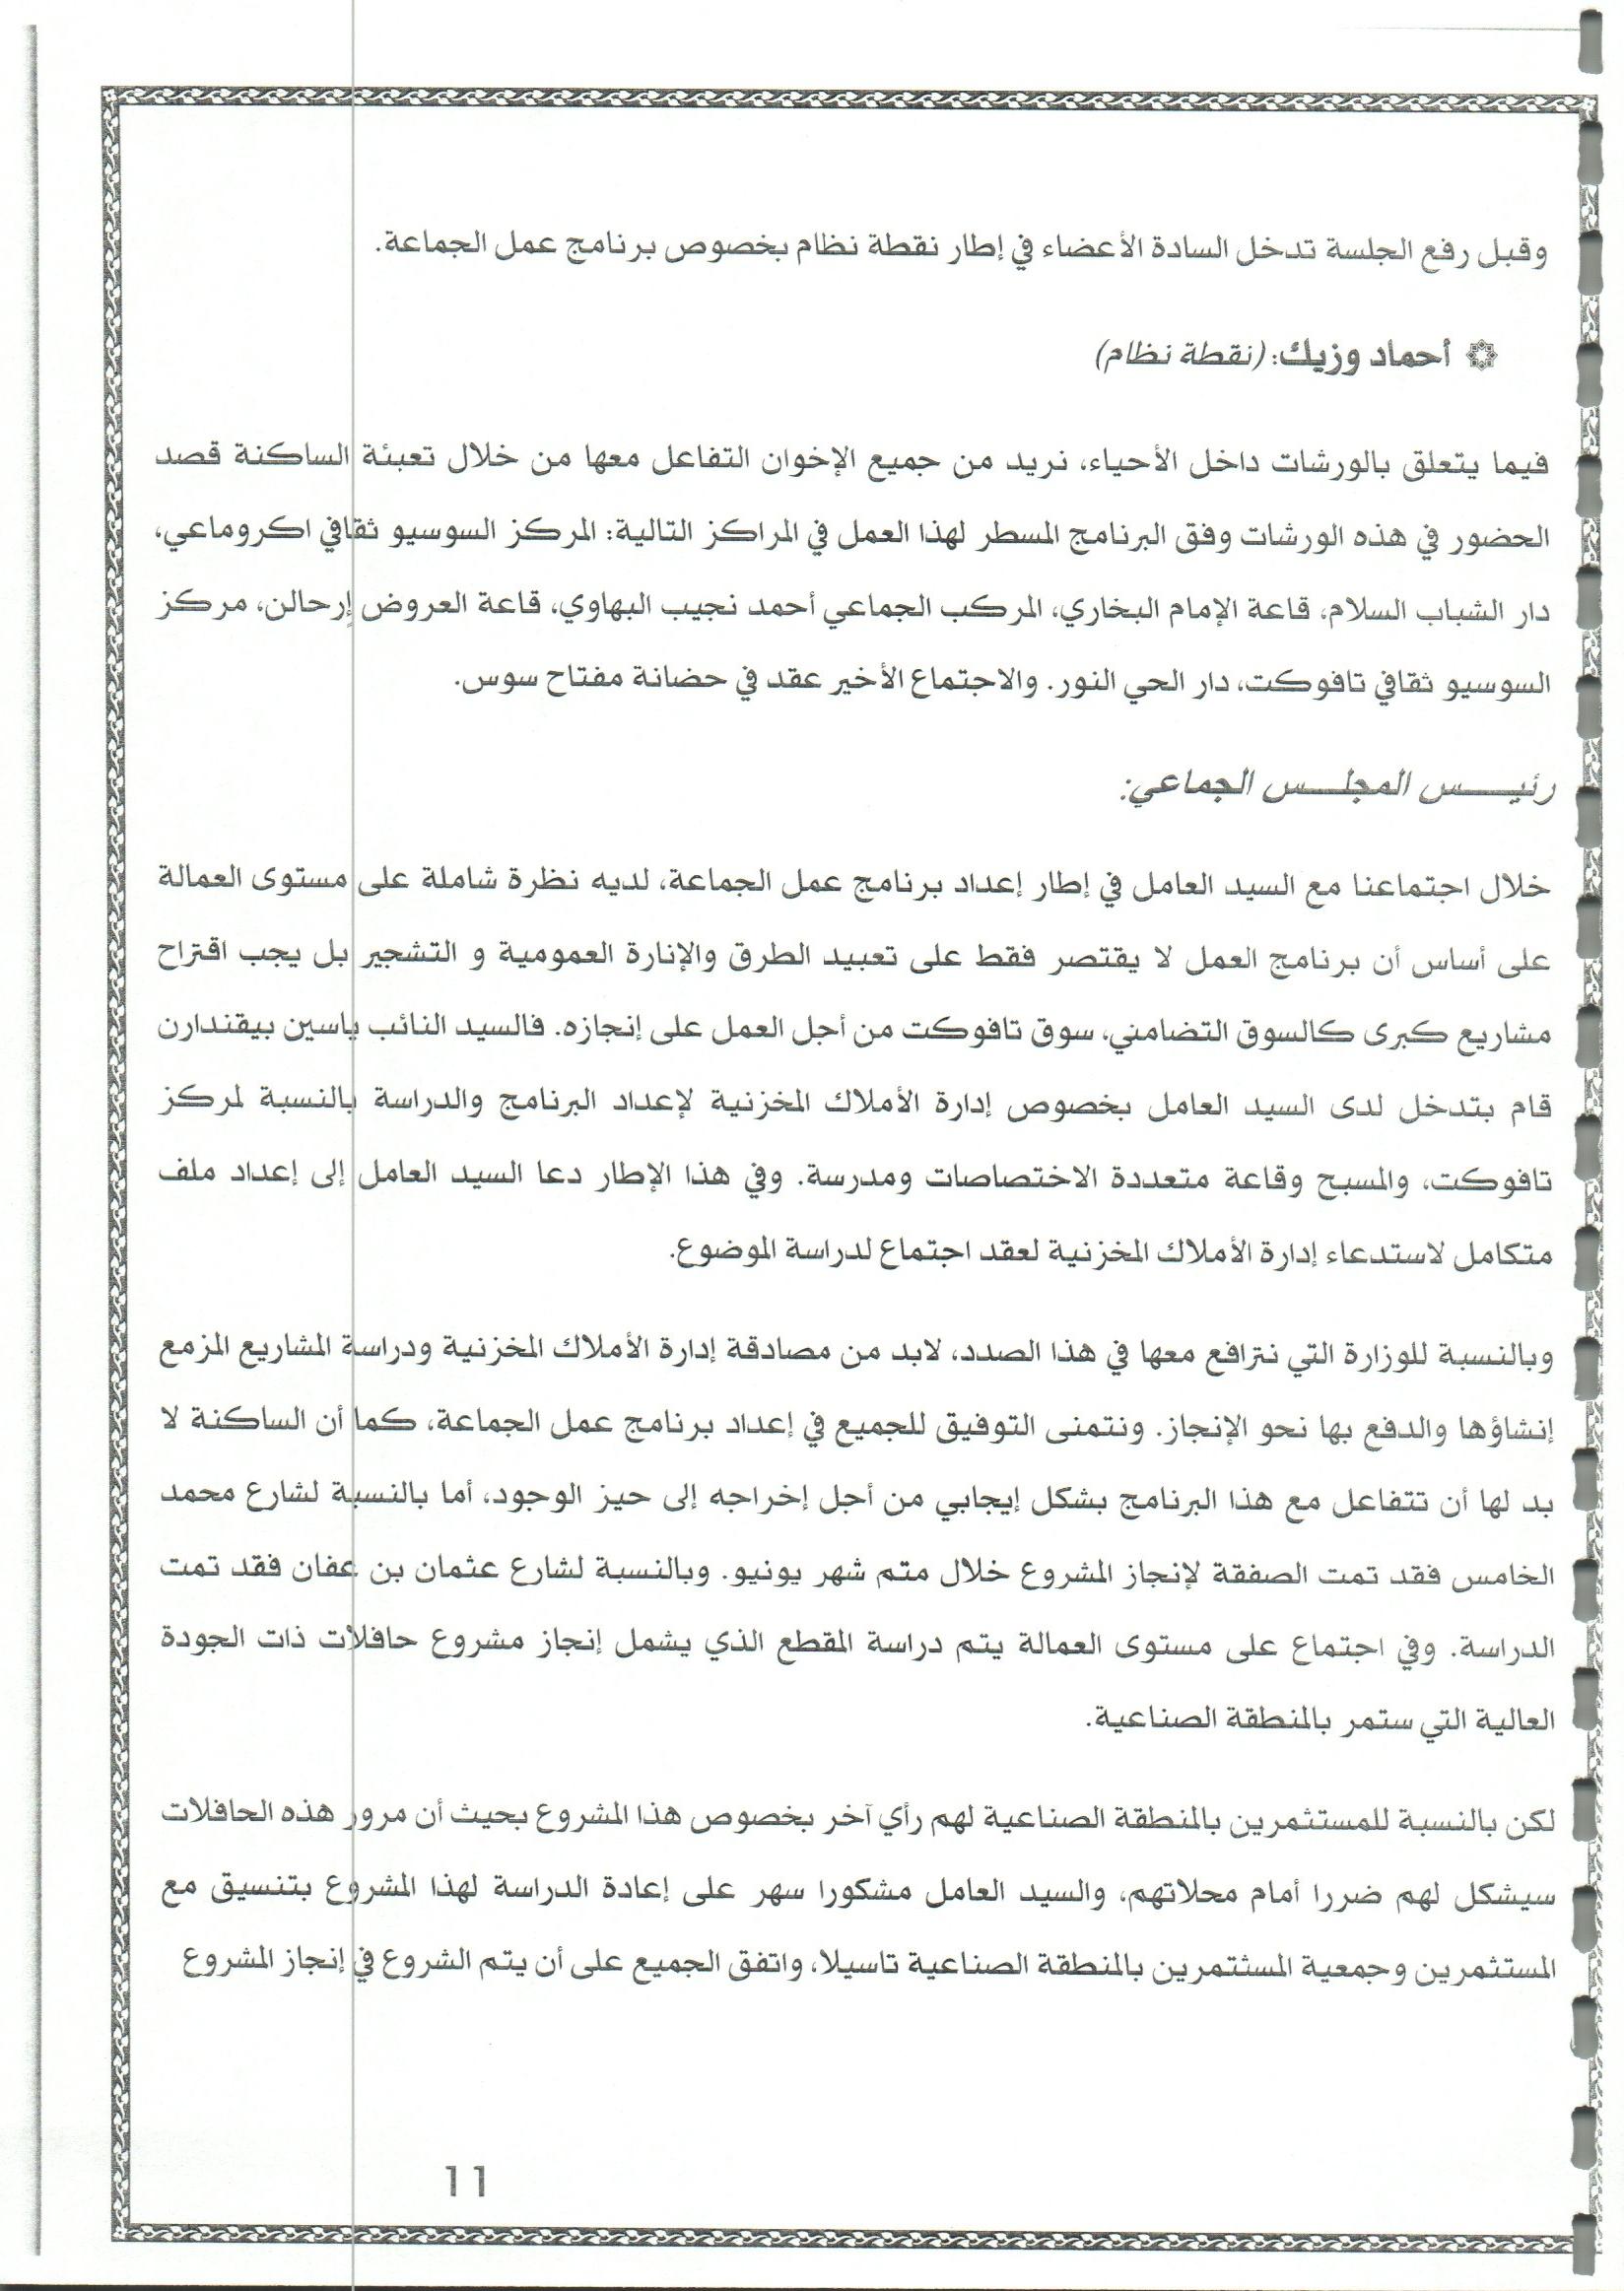 وقبل رفع الجلسة تدخل السادة الأعضاء في إطار نقطة نظام بخصوص برنامج عمل الجماعة.
أحماد وزيك: (نقطة نظام)
فيما يتعلق بالورشات داخل الأحياء، نريد من جميع الإخوان التفاعل معها من خلال تعبئة الساكنة قصد
الحضور في هذه الورشات وفق البرنامج المسطر لهذا العمل في المراكز التالية: المركز السوسيو ثقافي اكروماعي،
دار الشباب السلام، قاعة الإمام البخاري، المركب الجماعي أحمد نجيب البهاوي، قاعة العروض إرحالن، مركز
السوسيو ثقافي تافوكت، دار الحي النور. والاجتماع الأخير عقد في حضانة مفتاح سوس.
رئيـــــس المجلــــس الجماعي:
خلال اجتماعنا مع السيد العامل في إطار إعداد برنامج عمل الجماعة، لديه نظرة شاملة على مستوى العمالة
على أساس أن برنامج العمل لا يقتصر فقط على تعبيد الطرق والإنارة العمومية و التشجير بل يجب اقتراح
مشاريع كبرى كالسوق التضامني، سوق تافوكت من أجل العمل على إنجازه. فالسيد النائب ياسين بيقندارن
قام بتدخل لدى السيد العامل بخصوص إدارة الأملاك المخزنية لإعداد البرنامج والدراسة بالنسبة لمركز
تافوكت، والمسبح وقاعة متعددة الاختصاصات ومدرسة. وفي هذا الإطار دعا السيد العامل إلى إعداد ملف
متكامل لاستدعاء إدارة الأملاك المخزنية لعقد اجتماع لدراسة الموضوع.
وبالنسبة للوزارة التي نترافع معها في هذا الصدد، لابد من مصادقة إدارة الأملاك المخزنية ودراسة المشاريع المزمع
إنشاؤها والدفع بها نحو الإنجاز. ونتمنى التوفيق للجميع في إعداد برنامج عمل الجماعة، كما أن الساكنة لا
بد لها أن تتفاعل مع هذا البرنامج بشكل إيجابي من أجل إخراجه إلى حيز الوجود، أما بالنسبة لشارع محمد
الخامس فقد تمت الصفقة لإنجاز المشروع خلال متم شهر يونيو. وبالنسبة لشارع عثمان بن عفان فقد تمت
الدراسة. وفي اجتماع على مستوى العمالة يتم دراسة المقطع الذي يشمل إنجاز مشروع حافلات ذات الجودة
العالية التي ستمر بالمنطقة الصناعية.
لكن بالنسبة للمستثمرين بالمنطقة الصناعية لهم رأي آخر بخصوص هذا المشروع بحيث أن مرور هذه الحافلات
سيشكل لهم ضررا أمام محلاتهم، والسيد العامل مشكورا سهر على إعادة الدراسة لهذا المشروع بتنسيق مع
المستثمرين وجمعية المسثتمرين بالمنطقة الصناعية تاسيلا، واتفق الجميع على أن يتم الشروع في إنجاز المشروع
11